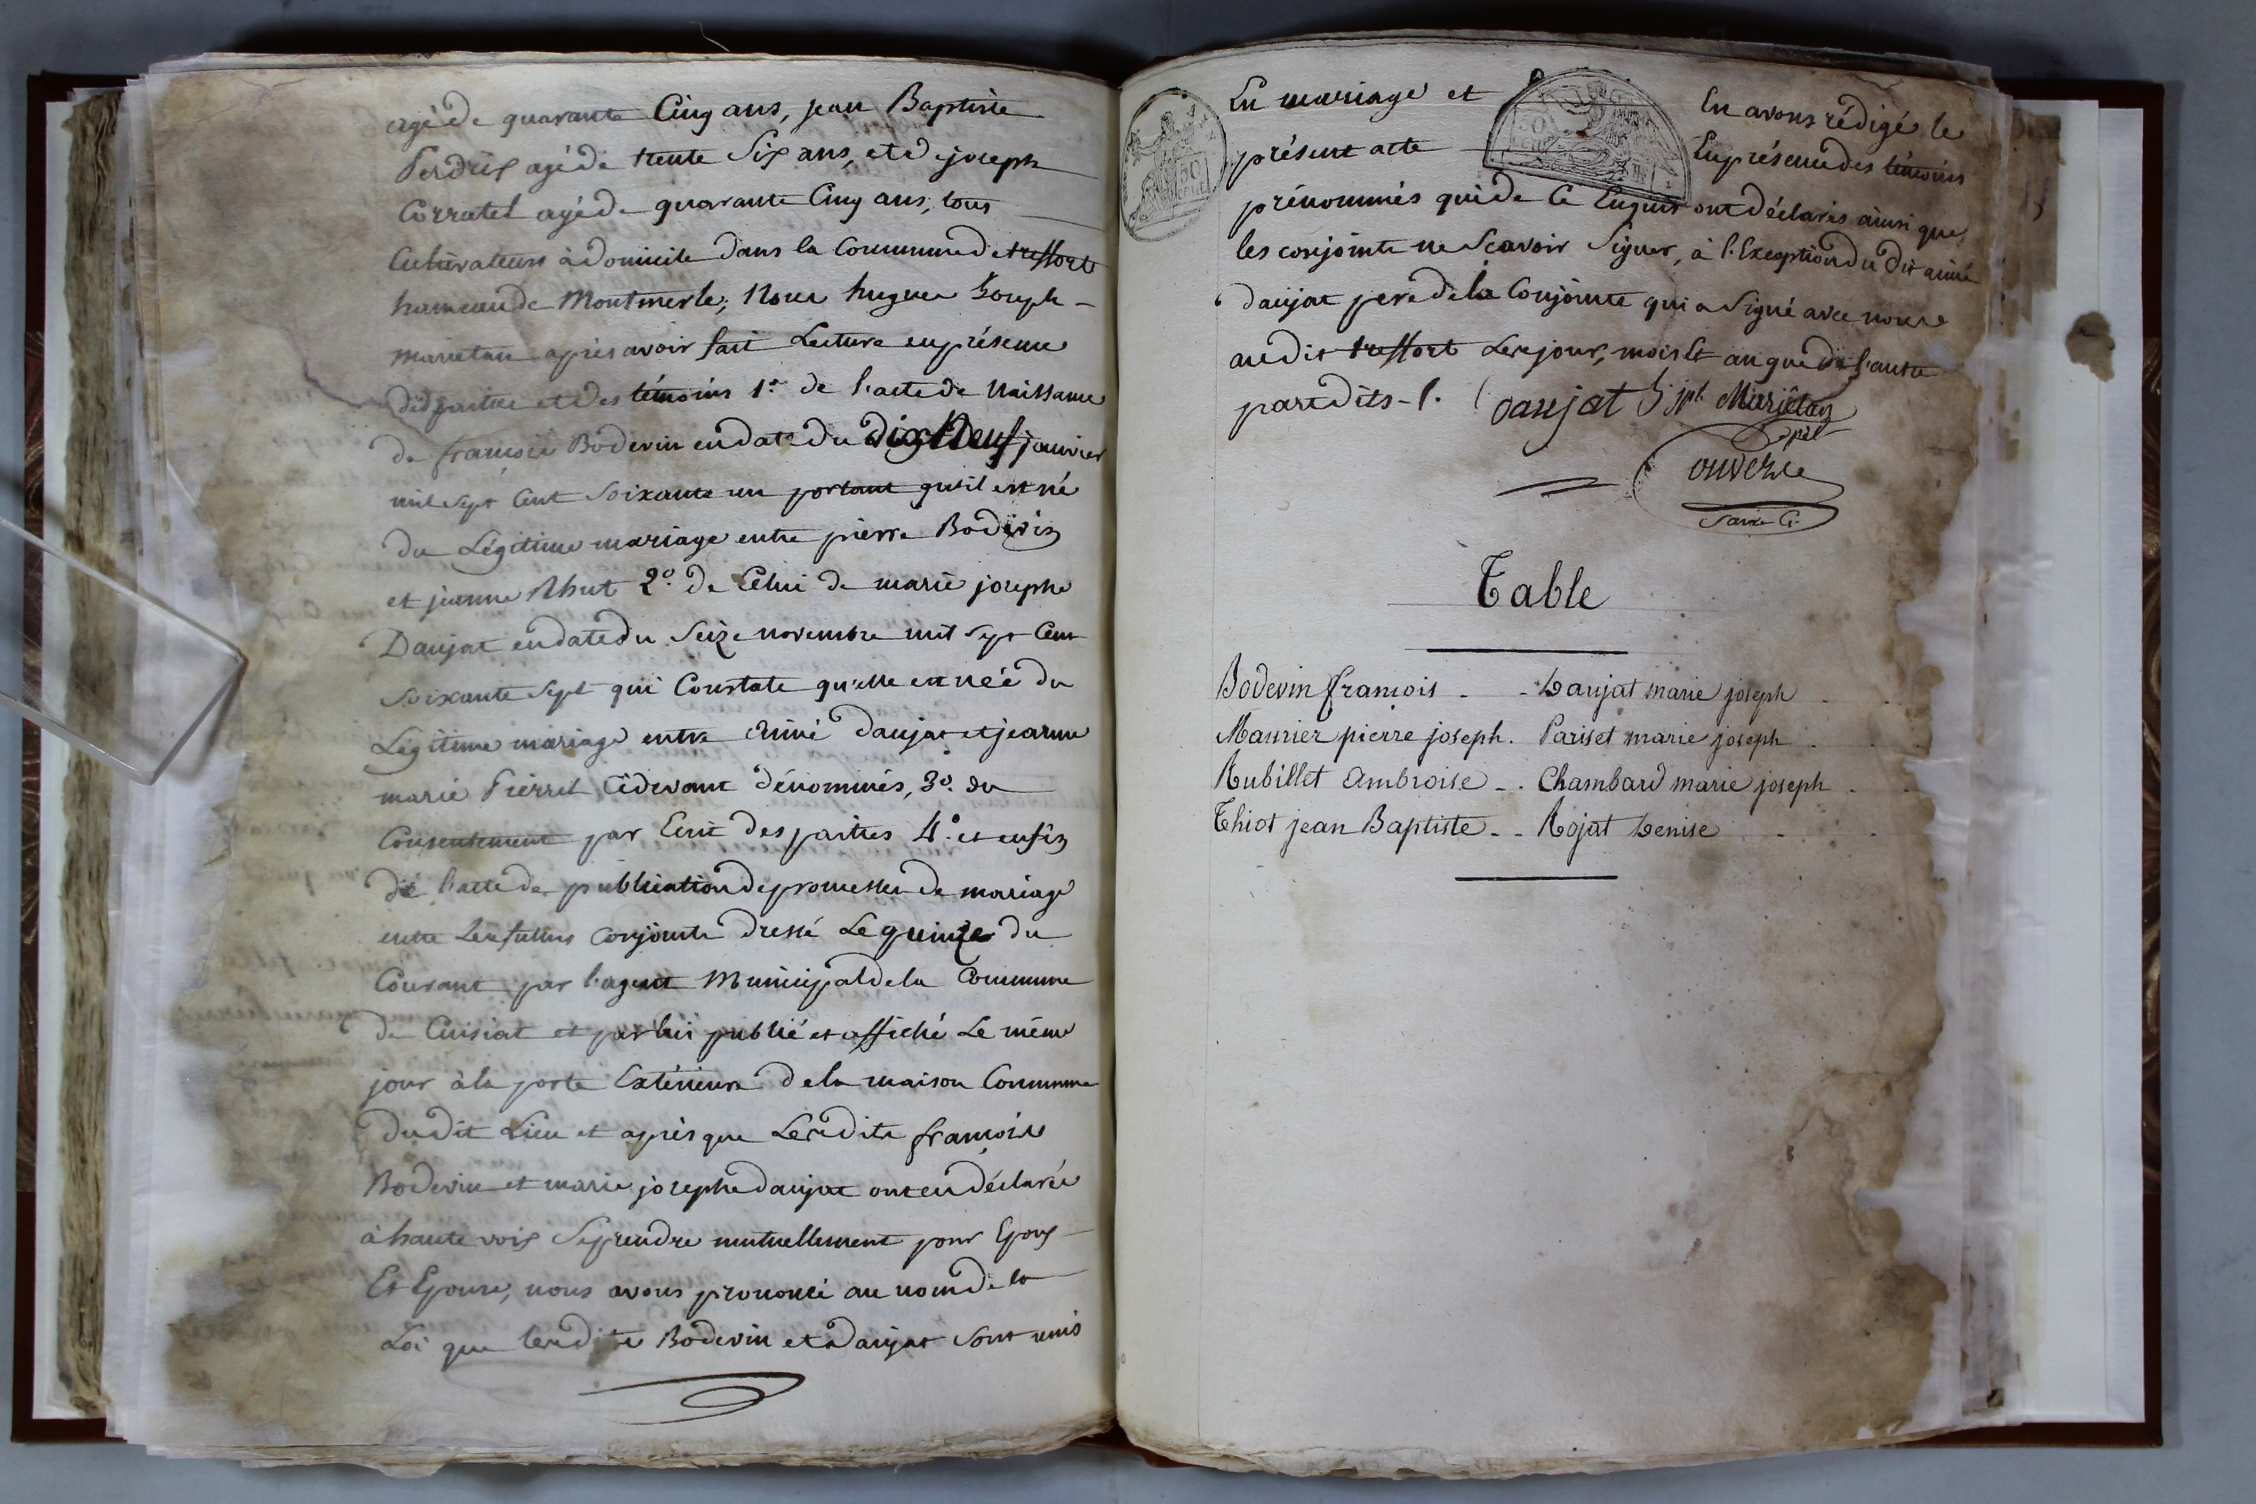 agé de quarante Cinq ans, jean Baptiste
Perdrix agé de trente Six ans, et de joseph
Corratet agé de quarante Cinq ans, tous
Cultivateurs à domicile dans la Commune de treffort
hameau de Montmerle; Nous hugues Joseph
Marietan après avoir fait Lecture en présence
des parties et des témoins 1º de l'acte de Naissance
de françois Bodevin en date du dix Neuf janvier
mil Sept Cent Soixante un portant qu'il est né
du Légitime mariage entre pierre Bodevin
et jeanne 2º de Celui de marie josephe
Daujat en date du Seize novembre mil Sept Cent
Soixante Sept qui Constate qu'elle est née du
Légitime mariage entre aimé daujat et jeanne
marie Pierret Cidevant dénommés, 3º du
Consentement par Ecrit des parties 4º et enfin
de l'acte de publication de promesses de mariage
entre Les futurs Conjoints dressé Le quinze du
Courant par l'agent Municipal de la Commune
de Cuisiat et par lui publié et affiché Le même
jour à la porte Extérieure de la maison Commune
dudit Lieu et après que Lesdits françois
Bodevin et marie josephe daujat ont eu déclaré
à haute voix Se prendre mutuellement pour Epoux
Et Epouse, nous avons prononcé au nom de la
Loi que lesdits Bodevin et daujat Sont unis
En mariage et En avons rédigé le
présent acte En présence des témoins
prénommés qui de Ce Enquis ont déclarés ainsi que
les conjoints ne Scavoir Signer, à l'Exception du dit aimé
daujat pere de la Conjointe qui a Signé avec nous
audit treffort Les jour, mois Et an que d'autre
part dits
daujat h. jph. Marietan
Table
Bodevin françois - - Daujat marie joseph
Maurier pierre joseph. Pariset marie joseph
Rubillet Ambroise - . Chambard marie joseph
Thiot jean Baptiste - - Rojat Denise